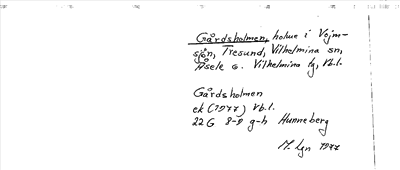 Gårdsholmen, holme i Vojm-
sjön, Tresund, Vilhelmina sn,
Åsele o. Vilhelmina tg, Vb.l.
Gårdsholmen
ek (1977) Vb.l.
22 G 8-9 g-h Hunneberg
M. Lgn 1977